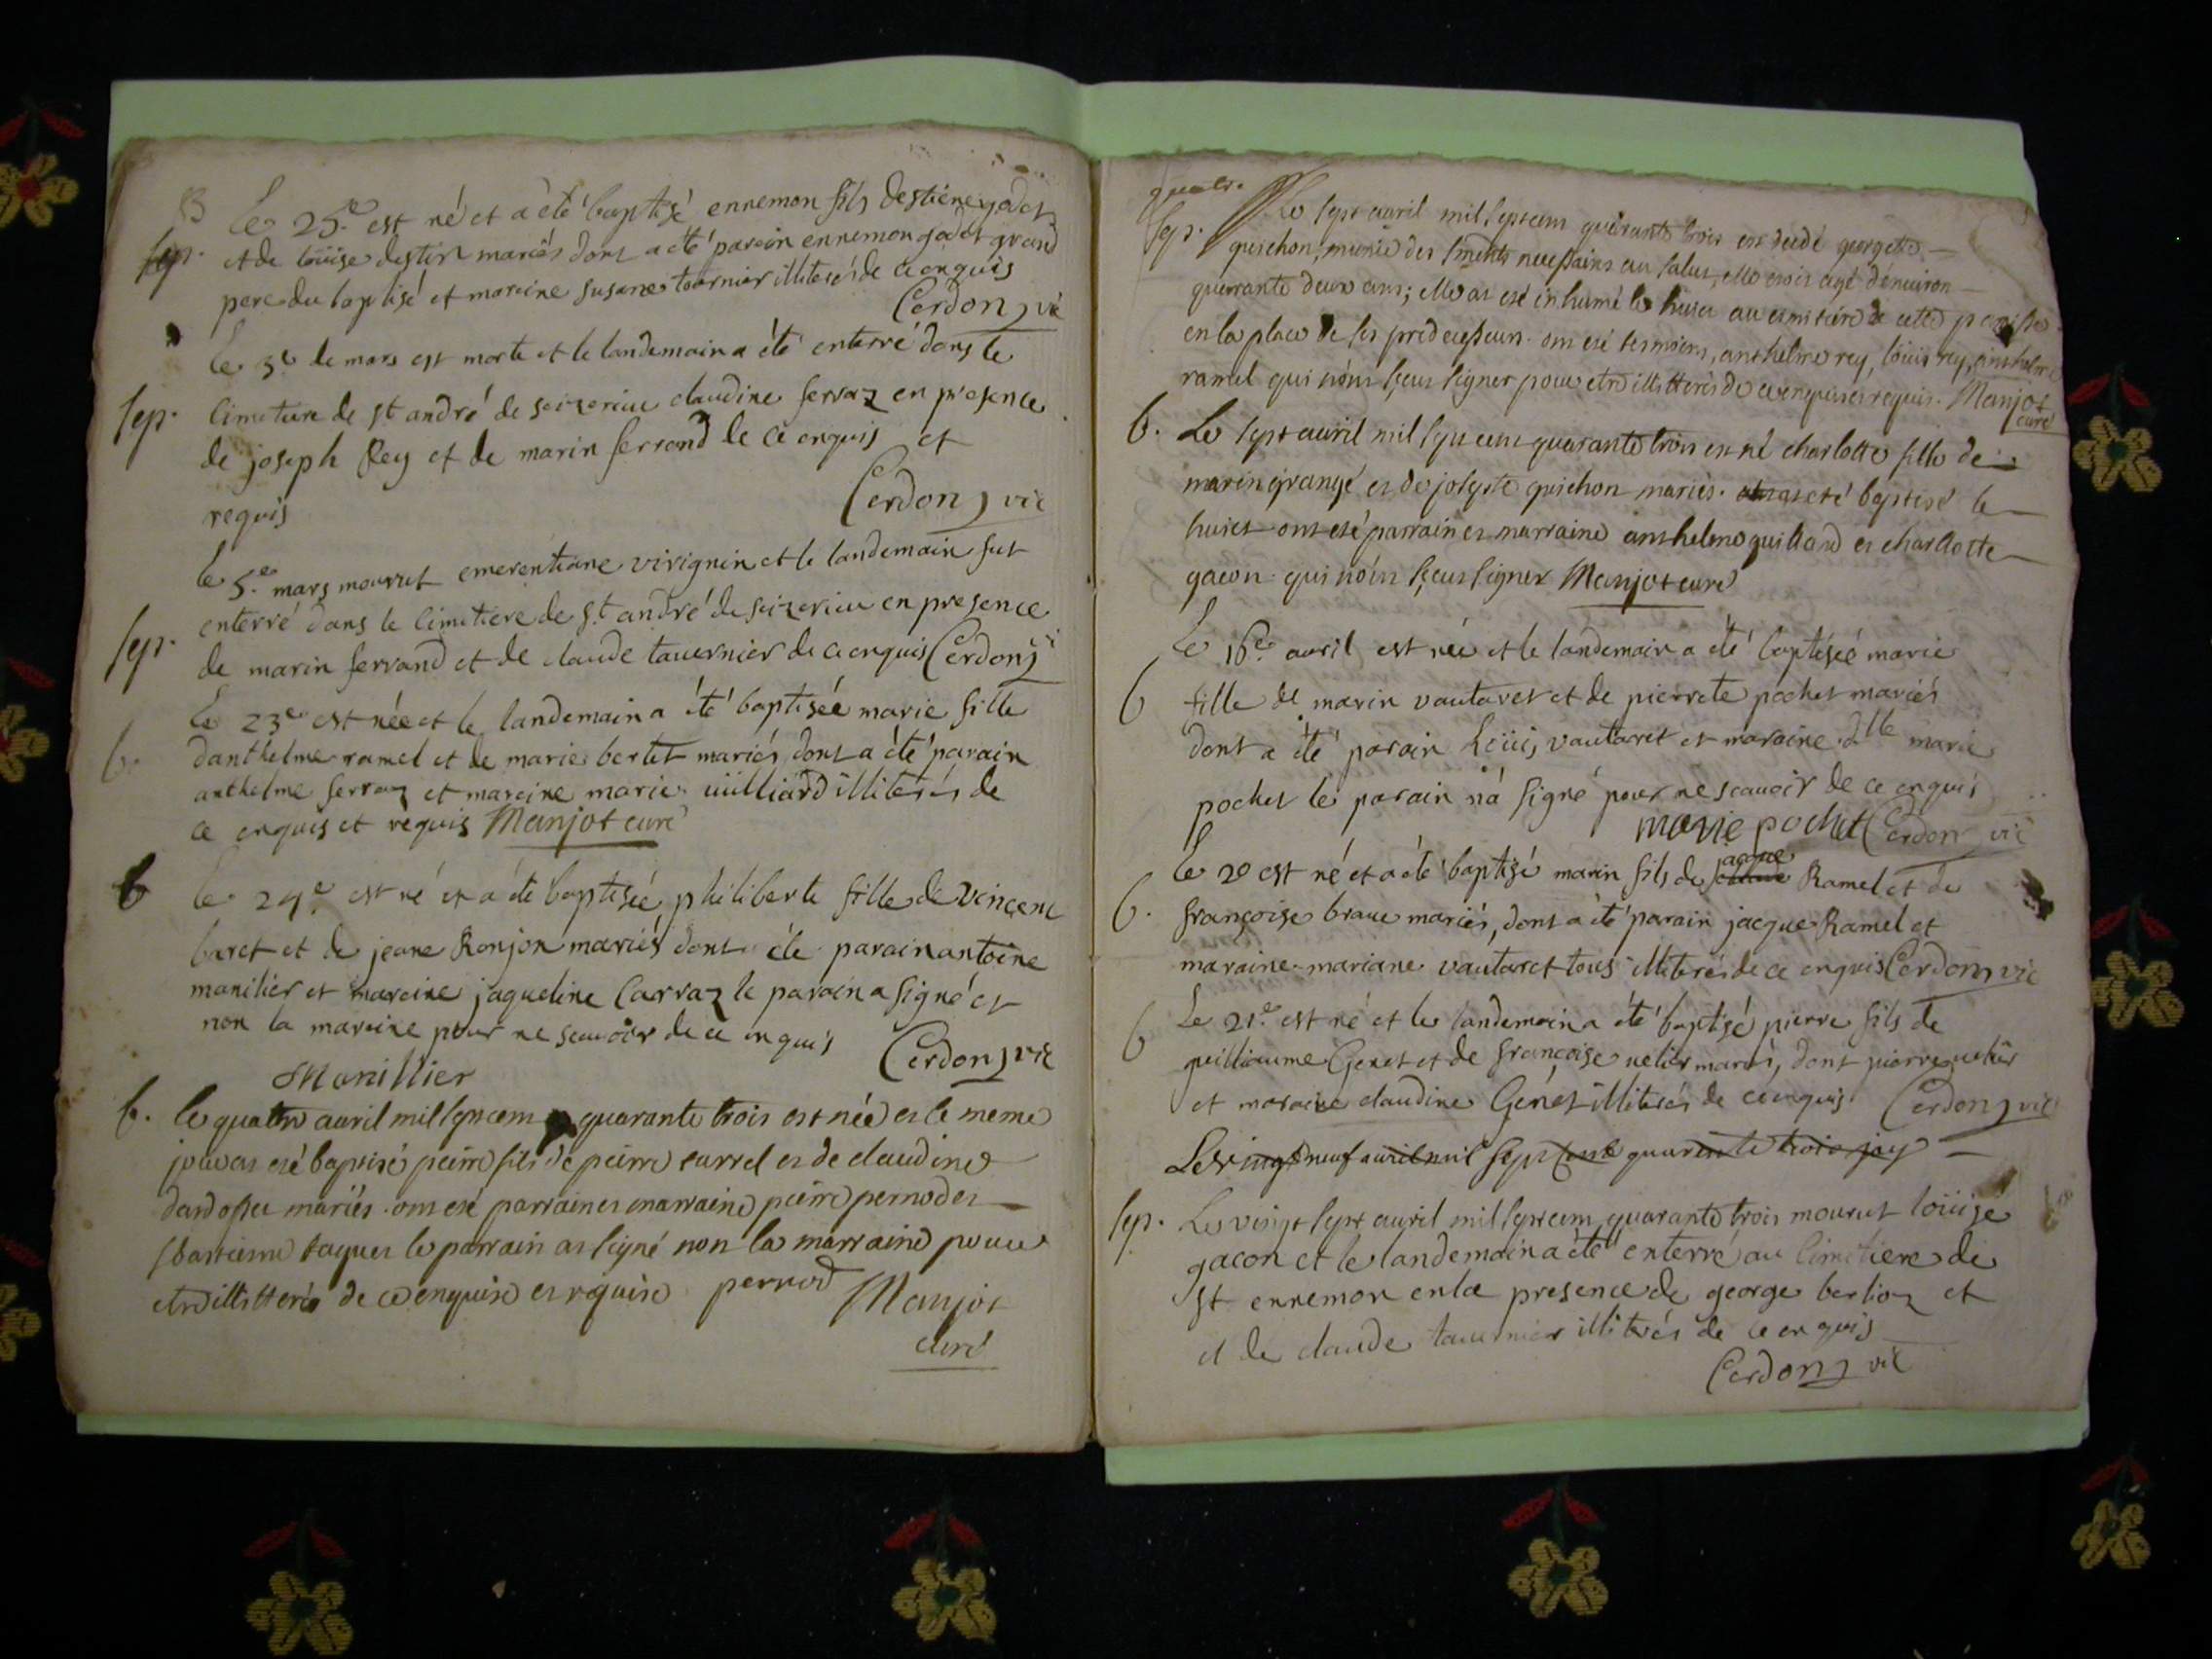 B Le 25.e est né et a été baptisé ennemon fils destiene godet
sep. et de loüise destin mariés dont a eté parain ennemon godet grand
pere du baptisé et maraine susane tournier illiterés de ce enquis
Cerdon vic
le 3.e de mars est morte et le landemain a été enterré dans le
sep. cimetiere de st andré de seizerieu claudine ferraz en presence
de joseph Rey et de marin ferrand de ce enquis et
requis Cerdon vic
le 5.e mars mourut emerentiane virignin et le landemain fut
enterré dans le cimetiere de st andré de seizerieu en presence
sep. de marin ferrand et de claude tavernier de ce enquis Cerdon vi
Le 23e est née et le landemain a été baptisée marie fille
b. danthelme ramel et de marie bertet mariés dont a été parain
anthelme ferraz et maraine marie illiterés de
ce enquis et requis Manjot curé
b le 24.e est né et a été baptisée philiberte fille de Vincent
baret et de jeane Ronjon mariés dont été parain antoine
manilier et maraine jaqueline Carraz le parain a signé et
non la maraine pour ne scavoir de ce enquis Cerdon vic
Manillier
b. le quatre avril mil sept cent quarante trois est née et le meme
jour as esté baptisé peirre fils de peirre carrel et de claudine
dardossu mariés. ont esté parrain et marraine peirre pernod et
sbastienne taques le parrain as signé non la marraine pour
etre illitteré de ce enquise et requise pernod Manjot
curé
quatr.
Le sept avril mil sept cent quarante trois est decedé georgette
sep. quichon, munie des sments necessaires au salut, elle estoit agé denuiron
quarrante deux ans; elle as esté inhumé le huict au cimitiere de cette parroisse
en la place de ses predecesseurs. ont esté tesmoins, anthelme rey, loüis rey, anthelme
ramel qui n'ont sçeus signer pour etre illitterés de ce enquis et requis. Manjot
curé
b. Le sept avril mil sept cent quarante trois est né charlotte fille de
marin grangé et de josepte quichon mariés. as eté baptisé le
huict ont esté parrain et marraine anthelme guillard et charlotte
gacon qui n'ont sçeus signer Manjot curé
Le 16e avril est née et le landemain a été baptisée marie
b fille de marin vautaret et de pierrete pochet mariés
dont a été parain Loüis vautaret et maraine dlle marie
pochet le parain n'a signé pour ne scavoir de ce enquis
marie pochet Cerdon vic
jacque
Le 20 est né et a été baptisé marin fils de Ramel et de
b. françoise brave mariés, dont a été parain jacque Ramel et
maraine mariane vautaret tous illiterés de ce enquis Cerdon vic
Le 21.e est né et le landemain a été baptisé pierre fils de
b guilliaume Genet et de françoise velier mariés, dont pierre velier
et maraine claudine Genet illiterés de ce enquis Cerdon vic
Le vingt neuf avril mil sept cent quarante trois
sep. Le vingt sept avril mil sept cent quarante trois mourut loüise
gacon et le landemain a été enterré au cimetiere de
st ennemon en la presence de george berlioz et
et de claude tavernier illiterés de ce enquis
Cerdon vic